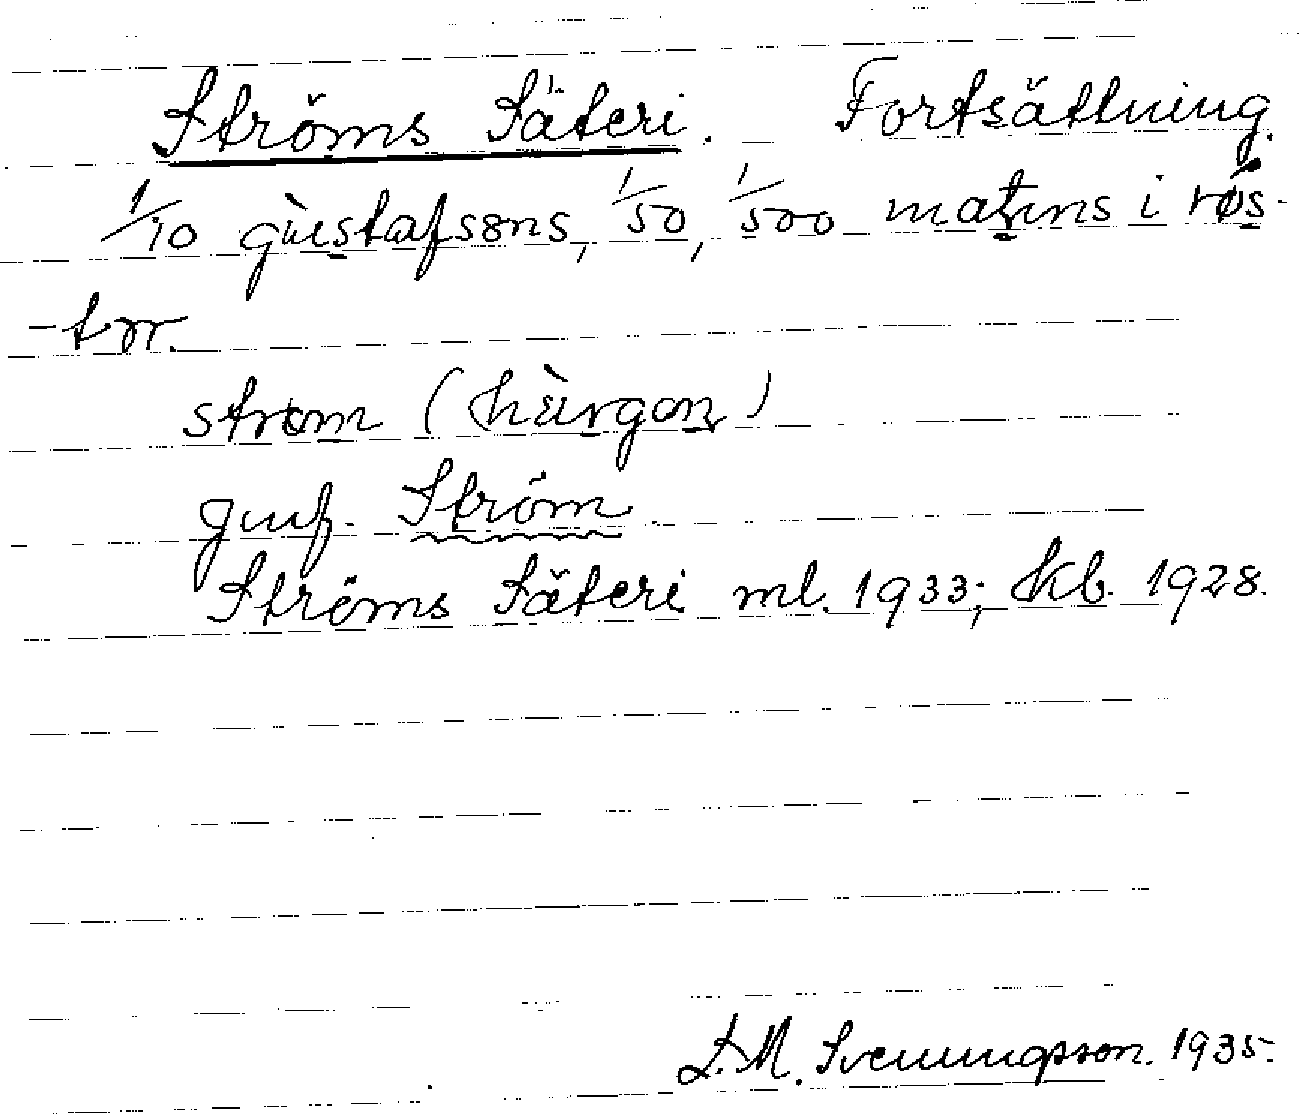 Ströms Säteri. Fortsättning.
1/10 gùstafsɷns, 1/50, 1/500 matins i røs-
-tɷr.
strɷm (hùrgɷn)
jmf. Ström
Ströms Säteri ml. 1933; Kb. 1928.
S.M. Svenungsson. 1935.